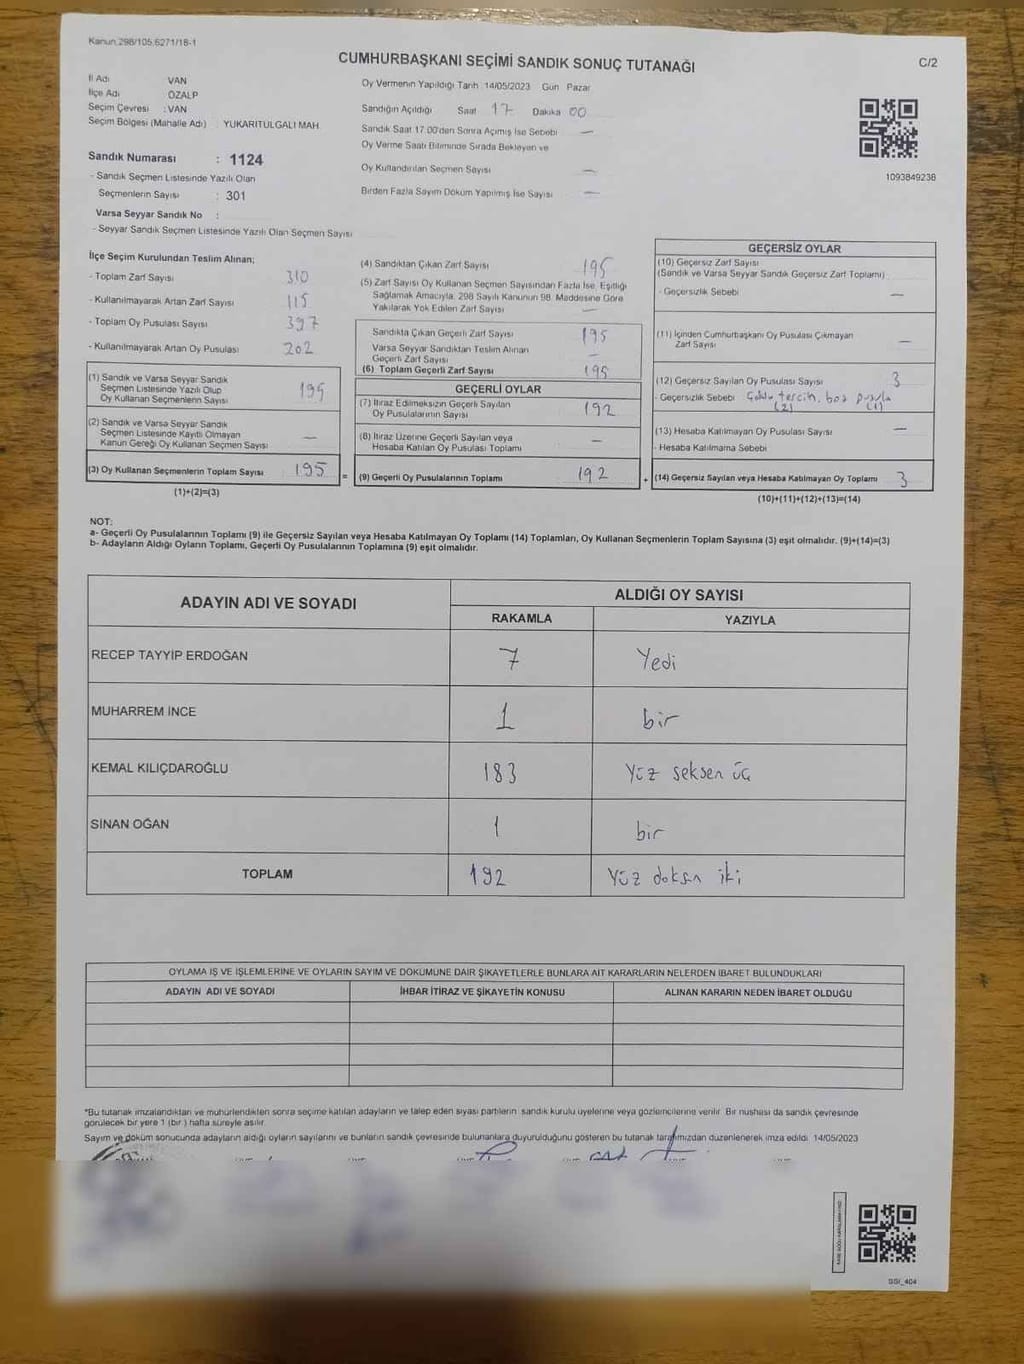 Kanun 298/105,6271/18-1
CUMHURBAŞKANI SEÇİMİ SANDIK SONUÇ TUTANAĞI
C/2
İl Adı VAN
İlçe Adı ÖZALP
Seçim Çevresi : VAN
Seçim Bölgesi (Mahalle Adı) : YUKARITULGALI MAH.
Sandık Numarası : 1124
- Sandık Seçmen Listesinde Yazılı Olan
Seçmenlerin Sayısı : 301
Varsa Seyyar Sandık No :
- Seyyar Sandık Seçmen Listesinde Yazılı Olan Seçmen Sayısı
Oy Vermenin Yapıldığı Tarih 14/05/2023 Gün Pazar
Sandığın Açıldığı Saat 17 Dakika 00
Sandık Saat 17.00'den Sonra Açılmış İse Sebebi —
Oy Verme Saati Bitiminde Sırada Bekleyen ve
Oy Kullandırılan Seçmen Sayısı —
Birden Fazla Sayım Döküm Yapılmış İse Sayısı —
1093849238
İlçe Seçim Kurulundan Teslim Alınan;
- Toplam Zarf Sayısı 310
- Kullanılmayarak Artan Zarf Sayısı 115
- Toplam Oy Pusulası Sayısı 397
- Kullanılmayarak Artan Oy Pusulası 202
(1) Sandık ve Varsa Seyyar Sandık
Seçmen Listesinde Yazılı Olup
Oy Kullanan Seçmenlerin Sayısı 195
(2) Sandık ve Varsa Seyyar Sandık
Seçmen Listesinde Kayıtlı Olmayan
Kanun Gereği Oy Kullanan Seçmen Sayısı —
(3) Oy Kullanan Seçmenlerin Toplam Sayısı 195 =
(1)+(2)=(3)
(4) Sandıktan Çıkan Zarf Sayısı 195
(5) Zarf Sayısı Oy Kullanan Seçmen Sayısından Fazla İse, Eşitliği
Sağlamak Amacıyla, 298 Sayılı Kanunun 98. Maddesine Göre
Yakılarak Yok Edilen Zarf Sayısı —
Sandıkta Çıkan Geçerli Zarf Sayısı 195
Varsa Seyyar Sandıktan Teslim Alınan
Geçerli Zarf Sayısı —
(6) Toplam Geçerli Zarf Sayısı 195
GEÇERLİ OYLAR
(7) İtiraz Edilmeksizin Geçerli Sayılan
Oy Pusulalarının Sayısı 192
(8) İtiraz Üzerine Geçerli Sayılan veya
Hesaba Katılan Oy Pusulası Toplamı —
(9) Geçerli Oy Pusulalarının Toplamı 192 +
GEÇERSİZ OYLAR
(10) Geçersiz Zarf Sayısı
(Sandık ve Varsa Seyyar Sandık Geçersiz Zarf Toplamı)
- Geçersizlik Sebebi —
(11) İçinden Cumhurbaşkanı Oy Pusulası Çıkmayan
Zarf Sayısı —
(12) Geçersiz Sayılan Oy Pusulası Sayısı 3
- Geçersizlik Sebebi Çoklu tercih, boş pusula
(2) (1)
(13) Hesaba Katılmayan Oy Pusulası Sayısı —
- Hesaba Katılmama Sebebi
(14) Geçersiz Sayılan veya Hesaba Katılmayan Oy Toplamı 3
(10)+(11)+(12)+(13)=(14)
NOT:
a- Geçerli Oy Pusulalarının Toplamı (9) ile Geçersiz Sayılan veya Hesaba Katılmayan Oy Toplamı (14) Toplamları, Oy Kullanan Seçmenlerin Toplam Sayısına (3) eşit olmalıdır. (9)+(14)=(3)
b- Adayların Aldığı Oyların Toplamı, Geçerli Oy Pusulalarının Toplamına (9) eşit olmalıdır.
ADAYIN ADI VE SOYADI
ALDIĞI OY SAYISI
RAKAMLA YAZIYLA
RECEP TAYYİP ERDOĞAN 7 Yedi
MUHARREM İNCE 1 bir
KEMAL KILIÇDAROĞLU 183 Yüz seksen üç
SİNAN OĞAN 1 bir
TOPLAM 192 Yüz doksan iki
OYLAMA İŞ VE İŞLEMLERİNE VE OYLARIN SAYIM VE DÖKÜMÜNE DAİR ŞİKAYETLERLE BUNLARA AİT KARARLARIN NELERDEN İBARET BULUNDUKLARI
ADAYIN ADI VE SOYADI İHBAR İTİRAZ VE ŞİKAYETİN KONUSU ALINAN KARARIN NEDEN İBARET OLDUĞU
*Bu tutanak imzalandıktan ve mühürlendikten sonra seçime katılan adayların ve talep eden siyasi partilerin sandık kurulu üyelerine veya gözlemcilerine verilir. Bir nüshası da sandık çevresinde
görülecek bir yere 1 (bir) hafta süreyle asılır.
Sayım ve döküm sonucunda adayların aldığı oyların sayılarını ve bunların sandık çevresinde bulunanlara duyurulduğunu gösteren bu tutanak tarafımızdan düzenlenerek imza edildi. 14/05/2023
SSİ_404